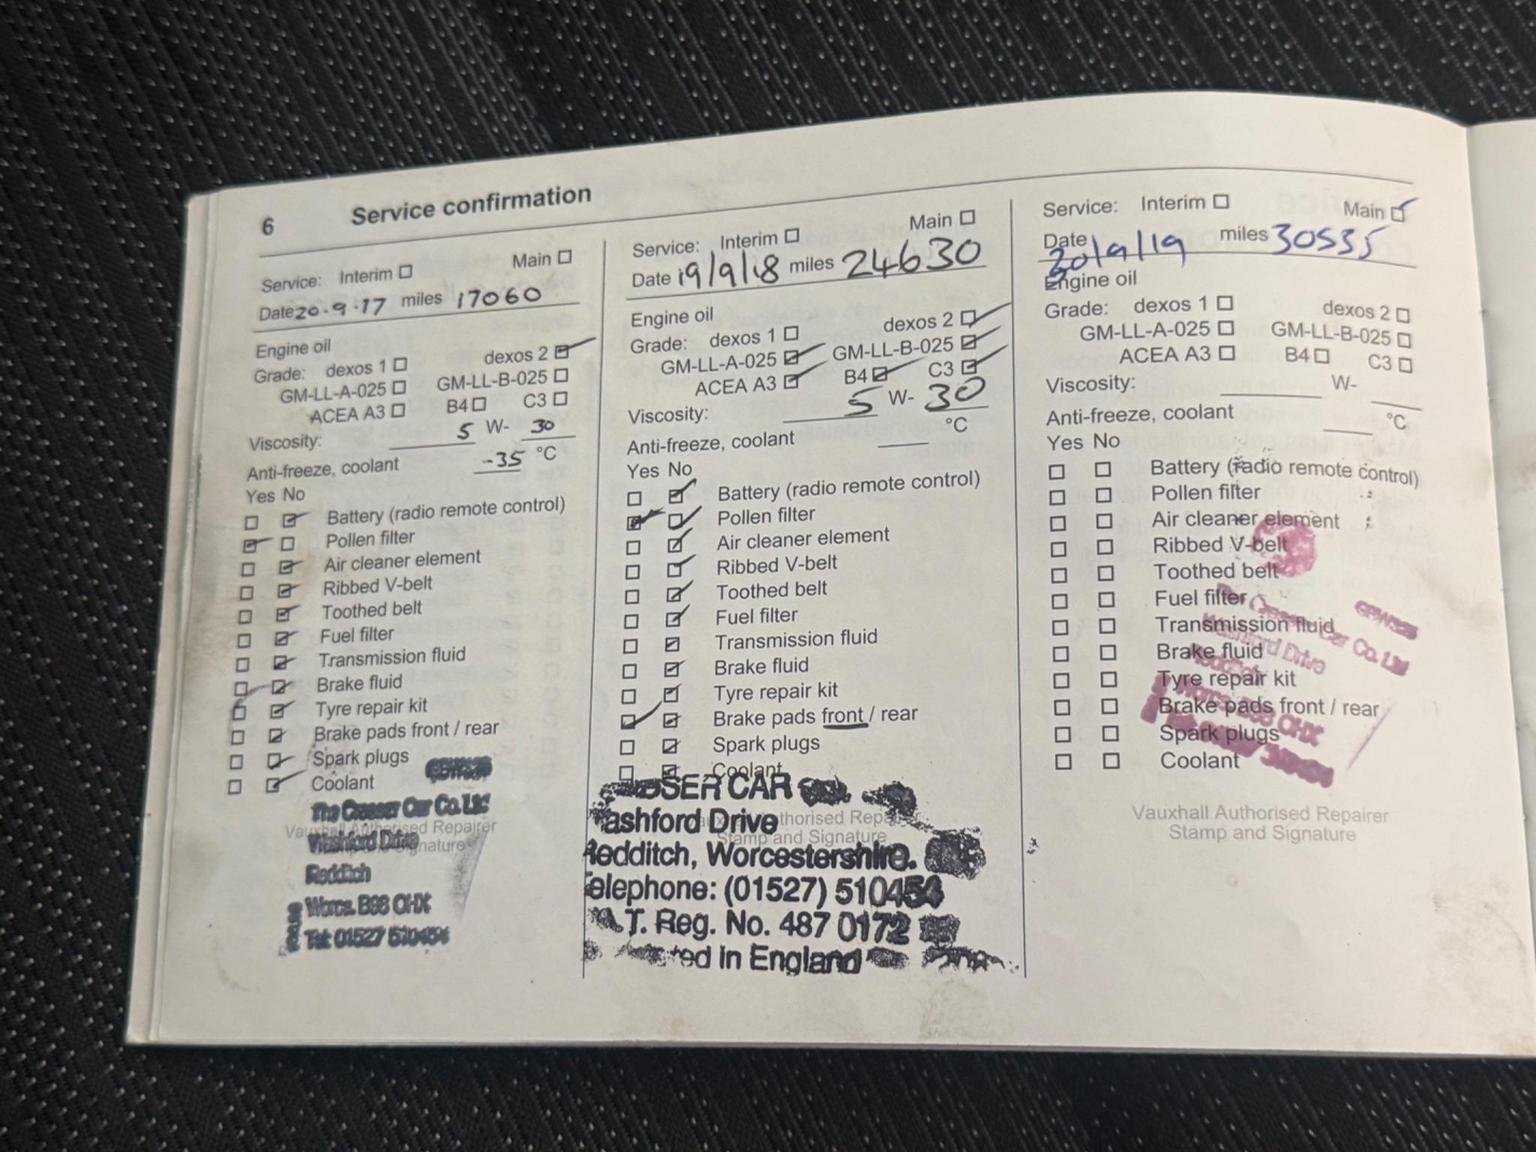 6 Service confirmation
Service: Interim Main
Date 20-9-17 miles 17060
Engine oil
Grade: dexos 1 dexos 2
GM-LL-A-025 GM-LL-B-025
ACEA A3 B4 C3
Viscosity: 5 W- 30
Anti-freeze, coolant -35 °C
Yes No
Battery (radio remote control)
Pollen filter
Air cleaner element
Ribbed V-belt
Toothed belt
Fuel filter
Transmission fluid
Brake fluid
Tyre repair kit
Brake pads front / rear
Spark plugs
Coolant
The Car Co. Ltd
Vauxhall Authorised Repairer
Washford Drive
Signature
Redditch
Worcs. B98 0HX
Tel: 01527 510454
Service: Interim Main
Date 19/9/18 miles 24630
Engine oil
Grade: dexos 1 dexos 2
GM-LL-A-025 GM-LL-B-025
ACEA A3 B4 C3
Viscosity: 5 W- 30
Anti-freeze, coolant °C
Yes No
Battery (radio remote control)
Pollen filter
Air cleaner element
Ribbed V-belt
Toothed belt
Fuel filter
Transmission fluid
Brake fluid
Tyre repair kit
Brake pads front / rear
Spark plugs
Coolant
SER CAR
ashford Drive
Stamp and Signature
Redditch, Worcestershire.
elephone: (01527) 510454
.T. Reg. No. 487 0172
ed in England
Service: Interim Main
Date 20/9/19 miles 30535
Engine oil
Grade: dexos 1 dexos 2
GM-LL-A-025 GM-LL-B-025
ACEA A3 B4 C3
Viscosity: W-
Anti-freeze, coolant °C
Yes No
Battery (radio remote control)
Pollen filter
Air cleaner element
Ribbed V-belt
Toothed belt
Fuel filter
Transmission fluid
Brake fluid
Tyre repair kit
Brake pads front / rear
Spark plugs
Coolant
Car Co. Ltd
Washford Drive
Redditch
Worcs. B98 0HX
Vauxhall Authorised Repairer
Stamp and Signature